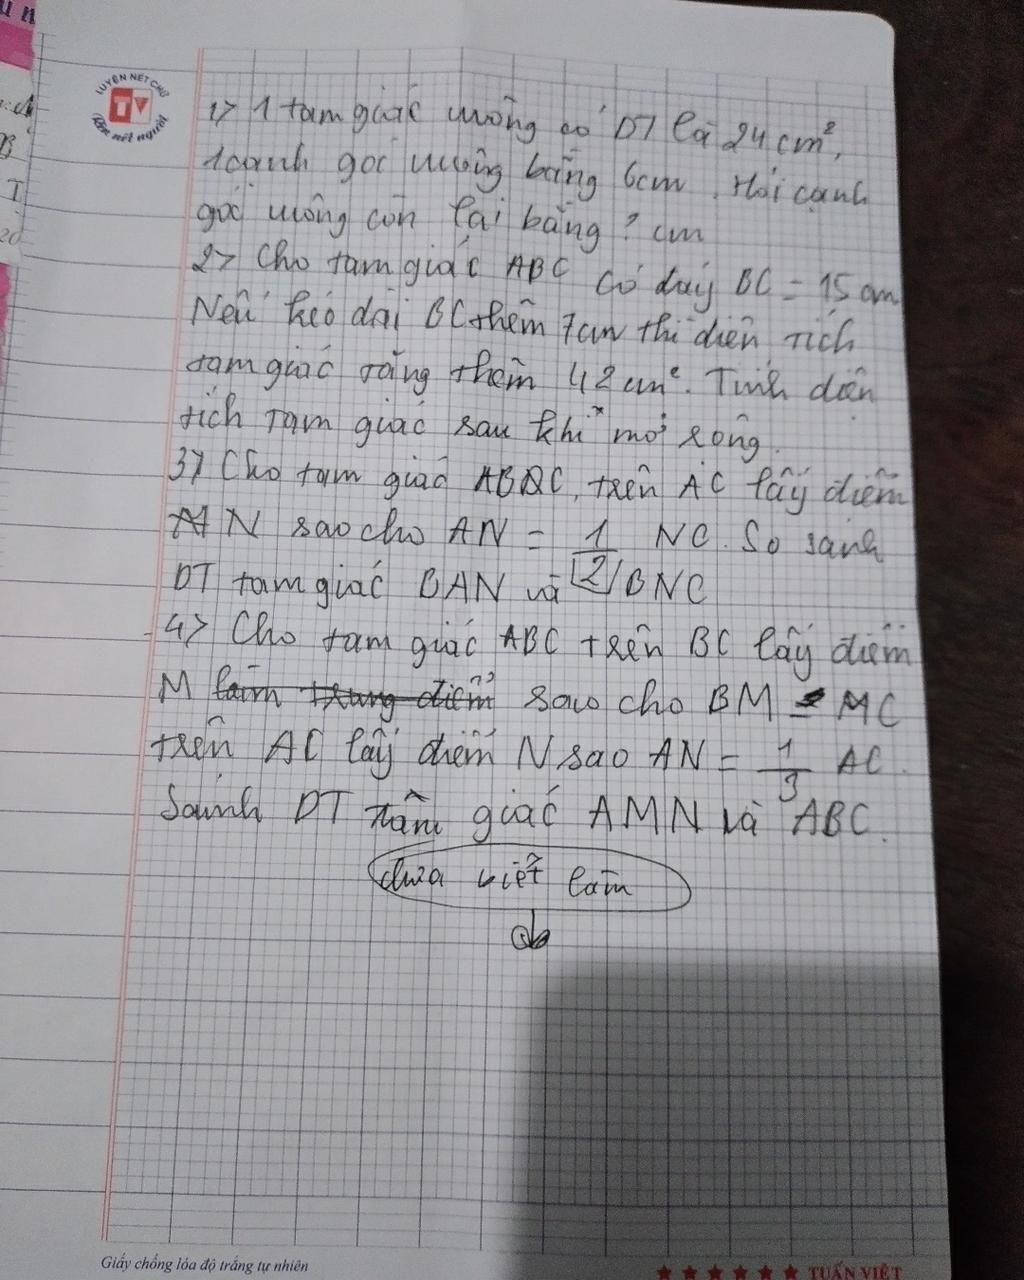 LUYỆN NẾT CHỮ
TV
Rèn nết người
1> 1 tam giác vuông có DT là 24 cm²,
1 cạnh góc vuông bằng 6cm. Hỏi cạnh
góc vuông còn lại bằng ? cm
2> Cho tam giác ABC có đáy BC = 15 cm
Nếu kéo dài BC thêm 7cm thì diện tích
tam giác tăng thêm 42 cm². Tính diện
tích tam giác sau khi mở rộng.
3> Cho tam giác ABC, trên AC lấy điểm
N sao cho AN = 1/2 NC. So sánh
DT tam giác BAN và BNC
4> Cho tam giác ABC trên BC lấy điểm
M làm trung điểm sao cho BM = MC
trên AC lấy điểm N sao AN = 1/3 AC.
Sánh DT tam giác AMN và ABC.
chưa viết làm
Giấy chống lóa độ trắng tự nhiên
TUẤN VIỆT